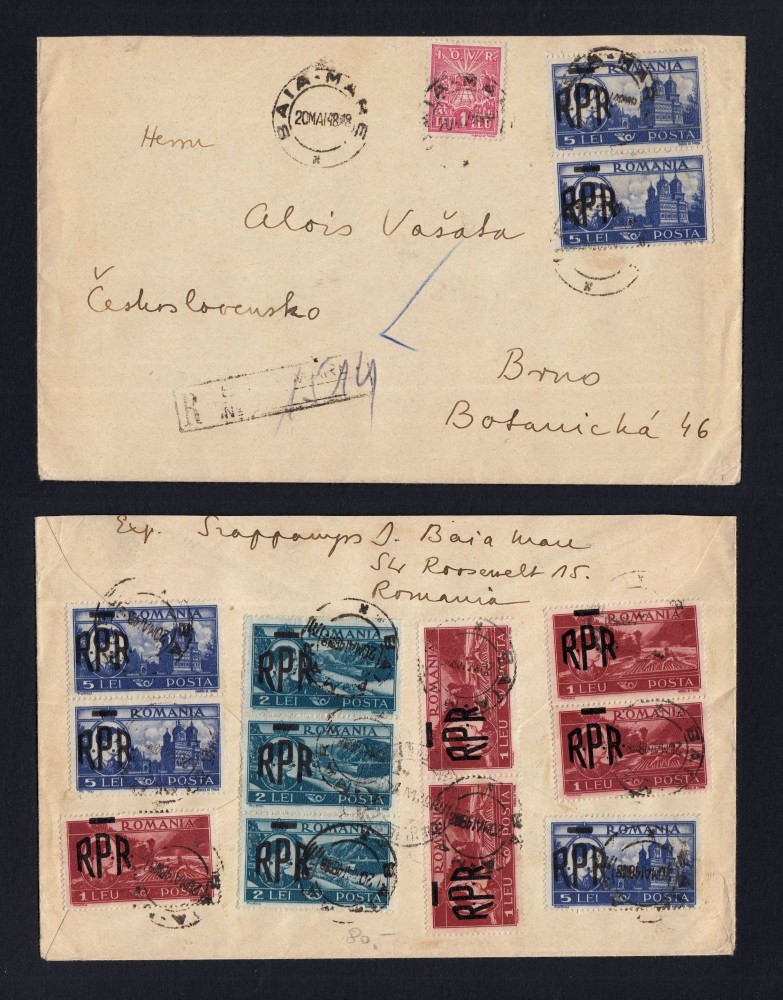 BAIA-MARE
20MAI48
I.O.V.R.
1 LEU
5 LEI POSTA
RPR
ROMANIA
RPR
5 LEI POSTA
Herrn
Alois Vašata
Československo
R
No
1514
Brno
Botanická 46
Exp. D. Baia Mare
Str Roosevelt 15.
Romania
ROMANIA
RPR
5 LEI POSTA
ROMANIA
RPR
5 LEI POSTA
ROMANIA
RPR
1 LEU POSTA
ROMANIA
RPR
2 LEI POSTA
ROMANIA
RPR
2 LEI POSTA
ROMANIA
RPR
2 LEI POSTA
ROMANIA
RPR
1 LEU POSTA
ROMANIA
RPR
1 LEU POSTA
ROMANIA
RPR
1 LEU POSTA
ROMANIA
RPR
1 LEU POSTA
ROMANIA
RPR
5 LEI POSTA
80.-